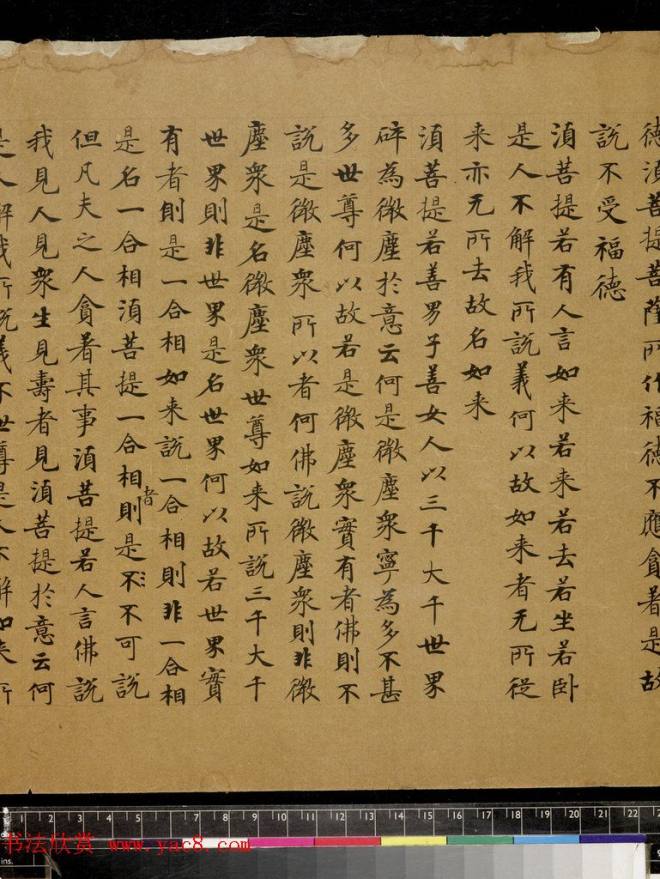 德湏菩提菩薩所作福德不應貪著是故
說不受福德
湏菩提若有人言如来若来若去若坐若卧
是人不解我所說義何以故如来者无所從
来亦无所去故名如来
湏菩提若善男子善女人以三千大千世界
碎為微塵於意云何是微塵衆寧為多不甚
多世尊何以故若是微塵衆實有者佛則不
說是微塵衆所以者何佛說微塵衆則非微
塵衆是名微塵衆世尊如来所說三千大千
世界則非世界是名世界何以故若世界實
有者則是一合相如来說一合相則非一合相
是名一合相湏菩提一合相者則是不不可說
但凡夫之人貪著其事湏菩提若人言佛說
我見人見衆生見壽者見湏菩提於意云何
是人解我所說義不世尊是人不解如来所
1 2 3 4 5 6 7 8 9 10 11 12 13 14 15 16 17 18 19 20 21 22
书法欣赏 www.yac8.com
ins.